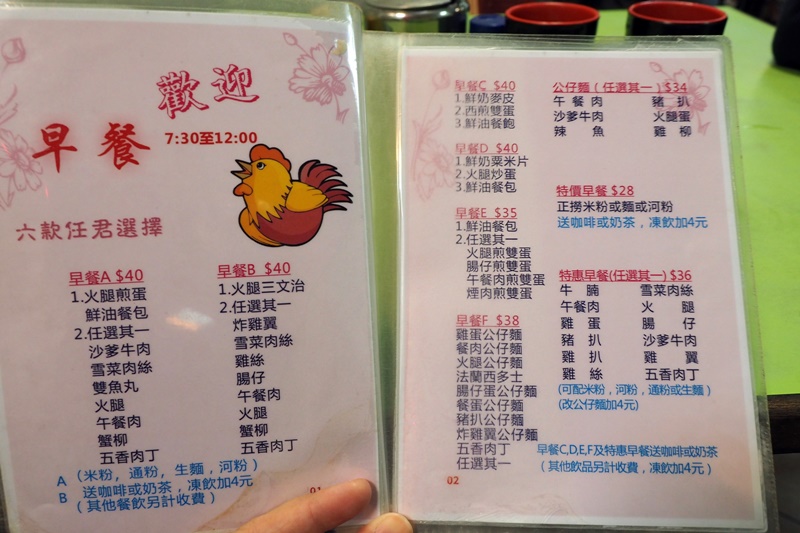 歡迎
早餐
7:30至12:00
六款任君選擇
早餐A $40
1.火腿煎蛋
鮮油餐包
2.任選其一
沙爹牛肉
雪菜肉絲
雙魚丸
火腿
午餐肉
蟹柳
五香肉丁
早餐B $40
1.火腿三文治
2.任選其一
炸雞翼
雪菜肉絲
雞絲
腸仔
午餐肉
火腿
蟹柳
五香肉丁
A (米粉, 通粉, 生麵, 河粉)
B 送咖啡或奶茶,凍飲加4元
(其他餐飲另計收費)
01
早餐C $40
1.鮮奶麥皮
2.西煎雙蛋
3.鮮油餐飽
早餐D $40
1.鮮奶粟米片
2.火腿炒蛋
3.鮮油餐包
早餐E $35
1.鮮油餐包
2.任選其一
火腿煎雙蛋
腸仔煎雙蛋
午餐肉煎雙蛋
煙肉煎雙蛋
早餐F $38
雞蛋公仔麵
餐肉公仔麵
火腿公仔麵
法蘭西多士
腸仔蛋公仔麵
餐蛋公仔麵
豬扒公仔麵
炸雞翼公仔麵
五香肉丁
任選其一
公仔麵(任選其一)$34
午餐肉 豬扒
沙爹牛肉 火腿蛋
辣魚 雞柳
特價早餐 $28
正撈米粉或麵或河粉
送咖啡或奶茶,凍飲加4元
特惠早餐(任選其一) $36
牛腩 雪菜肉絲
午餐肉 火腿
雞蛋 腸仔
豬扒 沙爹牛肉
雞扒 雞翼
雞絲 五香肉丁
(可配米粉,河粉,通粉或生麵)
(改公仔麵加4元)
早餐C,D,E,F及特惠早餐送咖啡或奶茶
(其他飲品另計收費,凍飲加4元)
02